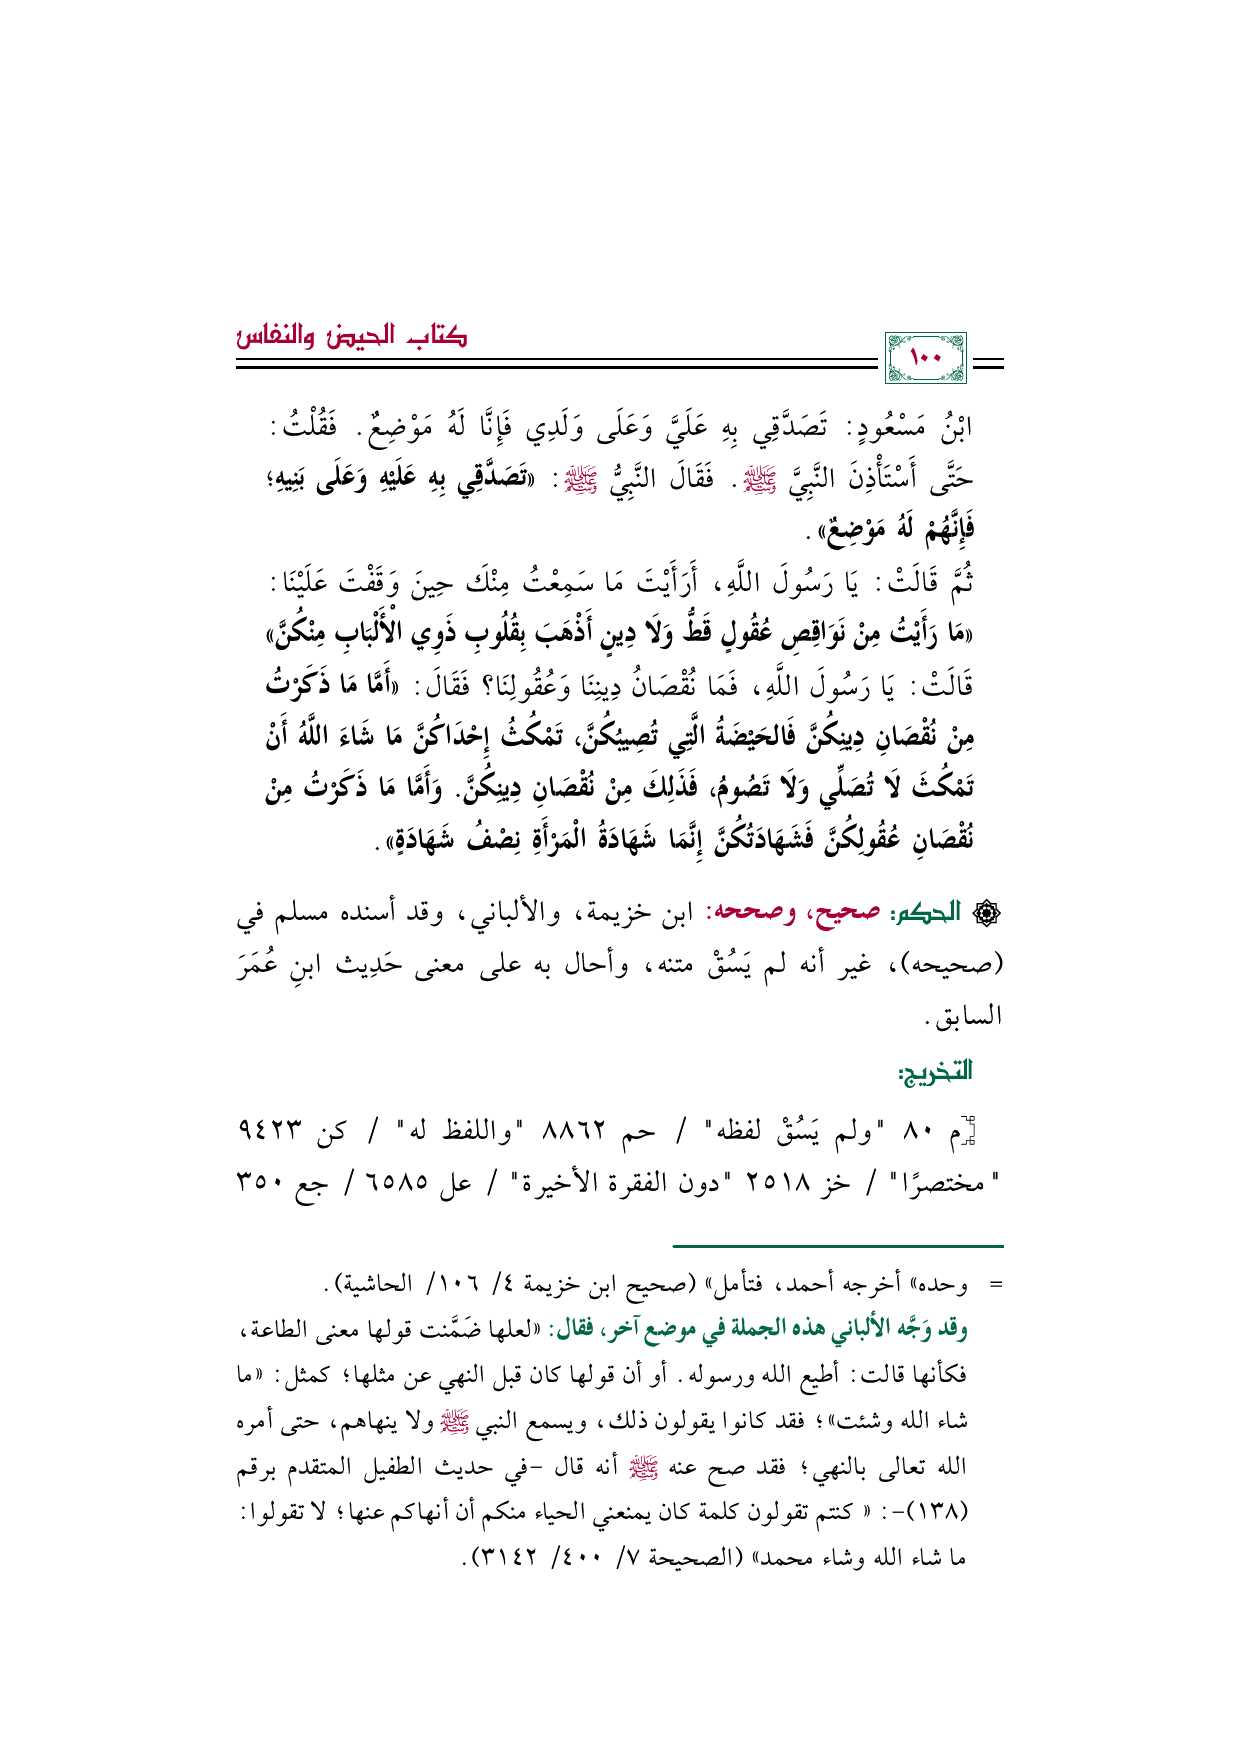 كتاب الحيض والنفاس
١٠٠
ابْنُ مَسْعُودٍ: تَصَدَّقِي بِهِ عَلَيَّ وَعَلَى وَلَدِي فَإِنَّا لَهُ مَوْضِعٌ. فَقُلْتُ:
حَتَّى أَسْتَأْذِنَ النَّبِيَّ ﷺ. فَقَالَ النَّبِيُّ ﷺ: «تَصَدَّقِي بِهِ عَلَيْهِ وَعَلَى بَنِيهِ؛
فَإِنَّهُمْ لَهُ مَوْضِعٌ».
ثُمَّ قَالَتْ: يَا رَسُولَ اللَّهِ، أَرَأَيْتَ مَا سَمِعْتُ مِنْكَ حِينَ وَقَفْتَ عَلَيْنَا:
«مَا رَأَيْتُ مِنْ نَوَاقِصِ عُقُولٍ قَطُّ وَلَا دِينٍ أَذْهَبَ بِقُلُوبِ ذَوِي الْأَلْبَابِ مِنْكُنَّ»
قَالَتْ: يَا رَسُولَ اللَّهِ، فَمَا نُقْصَانُ دِينِنَا وَعُقُولِنَا؟ فَقَالَ: «أَمَّا مَا ذَكَرْتُ
مِنْ نُقْصَانِ دِينِكُنَّ فَالحَيْضَةُ الَّتِي تُصِيبُكُنَّ، تَمْكُثُ إِحْدَاكُنَّ مَا شَاءَ اللَّهُ أَنْ
تَمْكُثَ لَا تُصَلِّي وَلَا تَصُومُ، فَذَلِكَ مِنْ نُقْصَانِ دِينِكُنَّ. وَأَمَّا مَا ذَكَرْتُ مِنْ
نُقْصَانِ عُقُولِكُنَّ فَشَهَادَتُكُنَّ إِنَّمَا شَهَادَةُ الْمَرْأَةِ نِصْفُ شَهَادَةٍ».
الحكم: صحيح، وصححه: ابن خزيمة، والألباني، وقد أسنده مسلم في
(صحيحه)، غير أنه لم يَسُقْ متنه، وأحال به على معنى حَدِيث ابنِ عُمَرَ
السابق.
التخريج:
[م ٨٠ "ولم يَسُقْ لفظه" / حم ٨٨٦٢ "واللفظ له" / كن ٩٤٢٣
"مختصرًا" / خز ٢٥١٨ "دون الفقرة الأخيرة" / عل ٦٥٨٥ / جع ٣٥٠
= وحده» أخرجه أحمد، فتأمل» (صحيح ابن خزيمة ٤/ ١٠٦/ الحاشية).
وقد وَجَّه الألباني هذه الجملة في موضع آخر، فقال: «لعلها ضَمَّنت قولها معنى الطاعة،
فكأنها قالت: أطيع الله ورسوله. أو أن قولها كان قبل النهي عن مثلها؛ كمثل: «ما
شاء الله وشئت»؛ فقد كانوا يقولون ذلك، ويسمع النبي ﷺ ولا ينهاهم، حتى أمره
الله تعالى بالنهي؛ فقد صح عنه ﷺ أنه قال -في حديث الطفيل المتقدم برقم
(١٣٨)-: « كنتم تقولون كلمة كان يمنعني الحياء منكم أن أنهاكم عنها؛ لا تقولوا:
ما شاء الله وشاء محمد» (الصحيحة ٧/ ٤٠٠/ ٣١٤٢).